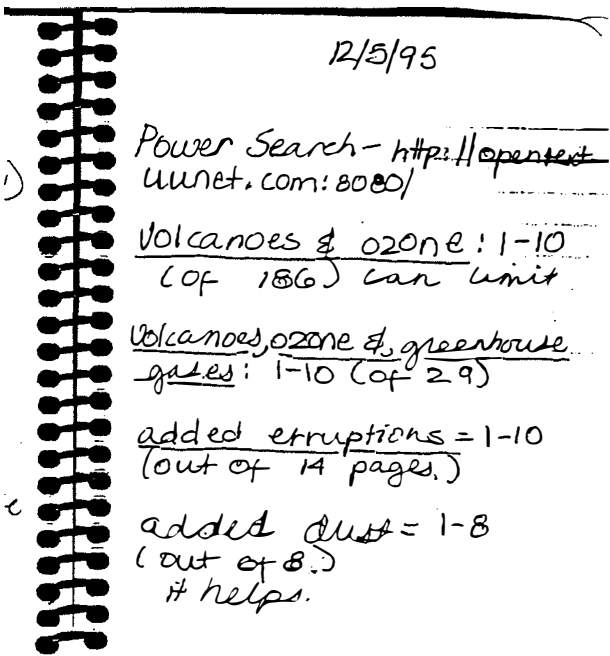 12/5/95
Power Search - http://opentext
uunet.com:8080/
Volcanoes & ozone: 1-10
(of 186) can limit
Volcanoes, ozone &, greenhouse
gases: 1-10 (of 29)
added erruptions = 1-10
(out of 14 pages.)
added dust = 1-8
(out of 8.)
it helps.